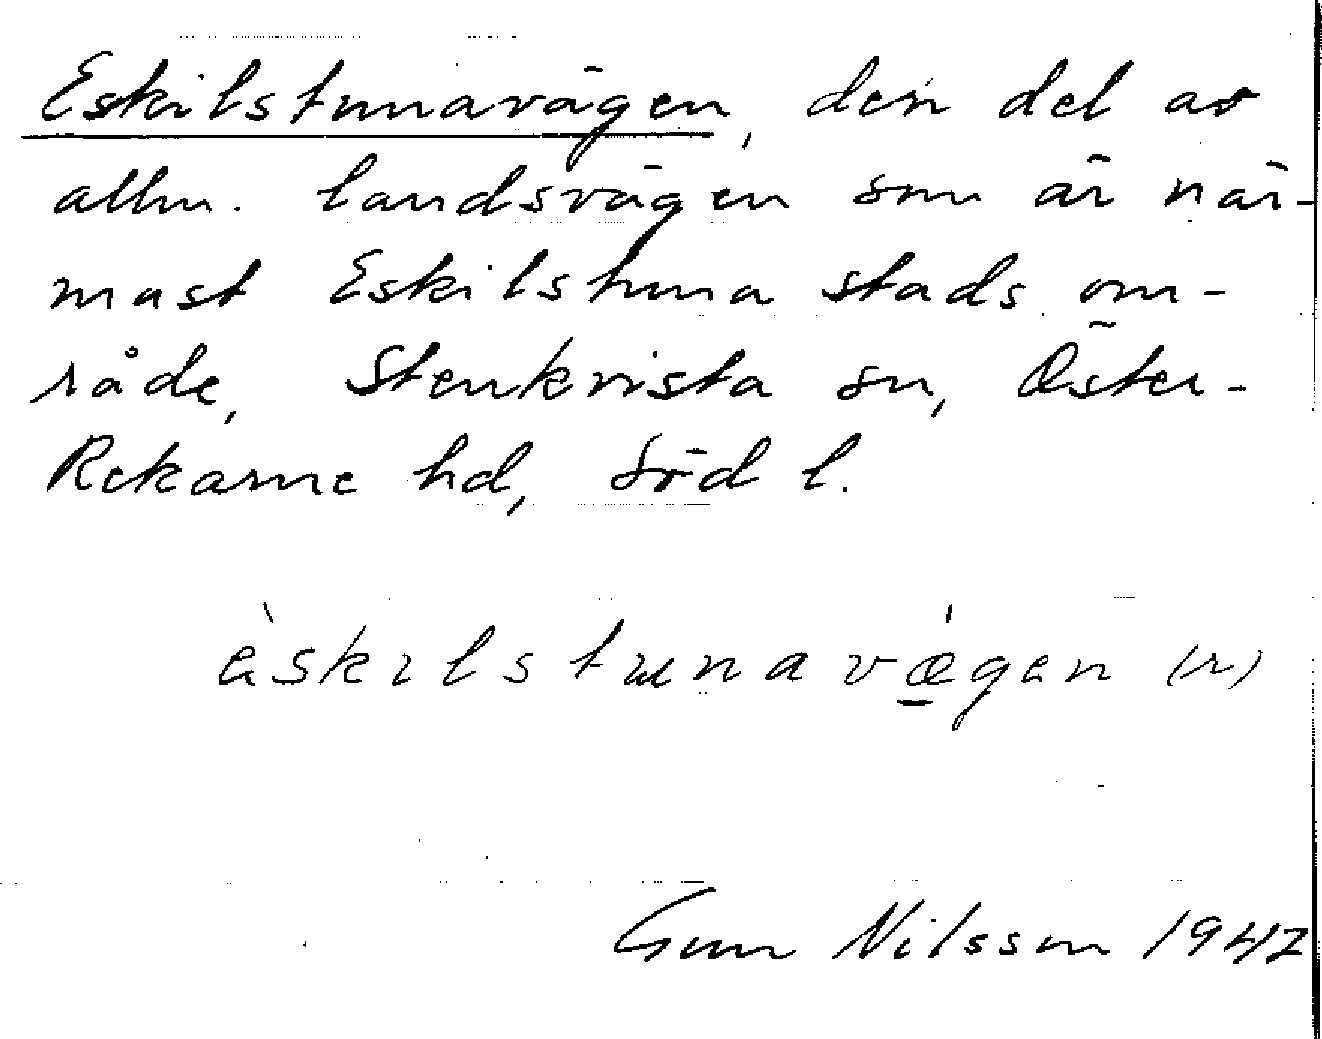 Eskilstunavägen, den del av
allm. landsvägen som är när-
mast Eskilstuna stads om-
råde, Stenkvista sn, Öster-
Rekarne hd, Söd l.
èskilstunavǽgen (r)
Gun Nilsson 1947